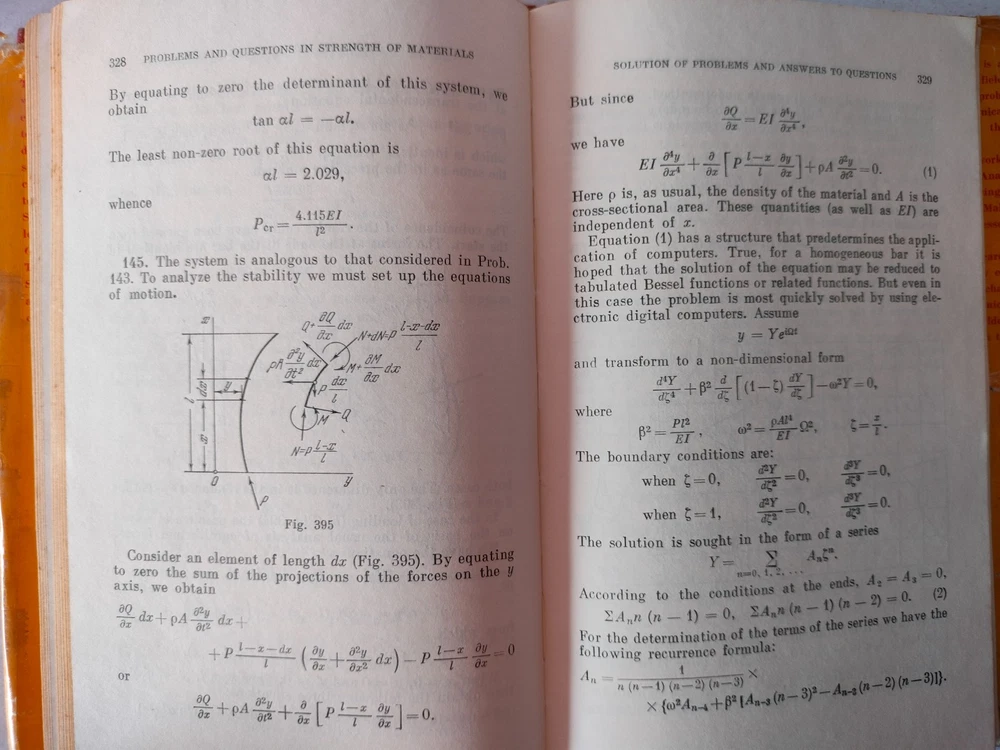 328 PROBLEMS AND QUESTIONS IN STRENGTH OF MATERIALS
By equating to zero the determinant of this system, we
obtain
tan αl = −αl.
The least non-zero root of this equation is
αl = 2.029,
whence
P_cr = 4.115EI / l².
145. The system is analogous to that considered in Prob.
143. To analyze the stability we must set up the equations
of motion.
x
Q+ ∂Q/∂x dx
N+dN=P (l−x−dx)/l
ρA ∂²y/∂t² dx
M+ ∂M/∂x dx
P dx/l
y
l
dx
x
M
Q
N=P (l−x)/l
0
y
P
Fig. 395
Consider an element of length dx (Fig. 395). By equating
to zero the sum of the projections of the forces on the y
axis, we obtain
∂Q/∂x dx + ρA ∂²y/∂t² dx +
+ P (l−x−dx)/l (∂y/∂x + ∂²y/∂x² dx) − P (l−x)/l ∂y/∂x = 0
or
∂Q/∂x + ρA ∂²y/∂t² + ∂/∂x [P (l−x)/l ∂y/∂x] = 0.
SOLUTION OF PROBLEMS AND ANSWERS TO QUESTIONS 329
But since
∂Q/∂x = EI ∂⁴y/∂x⁴,
we have
EI ∂⁴y/∂x⁴ + ∂/∂x [P (l−x)/l ∂y/∂x] + ρA ∂²y/∂t² = 0. (1)
Here ρ is, as usual, the density of the material and A is the
cross-sectional area. These quantities (as well as EI) are
independent of x.
Equation (1) has a structure that predetermines the appli-
cation of computers. True, for a homogeneous bar it is
hoped that the solution of the equation may be reduced to
tabulated Bessel functions or related functions. But even in
this case the problem is most quickly solved by using ele-
ctronic digital computers. Assume
y = Ye^{iΩt}
and transform to a non-dimensional form
d⁴Y/dζ⁴ + β² d/dζ [(1−ζ) dY/dζ] − ω²Y = 0,
where
β² = Pl²/EI, ω² = ρAl⁴/EI Ω², ζ = x/l.
The boundary conditions are:
when ζ = 0, d²Y/dζ² = 0, d³Y/dζ³ = 0,
when ζ = 1, d²Y/dζ² = 0, d³Y/dζ³ = 0.
The solution is sought in the form of a series
Y = Σ Aₙζⁿ.
n=0, 1, 2, ...
According to the conditions at the ends, A₂ = A₃ = 0,
ΣAₙn (n − 1) = 0, ΣAₙn (n − 1) (n − 2) = 0. (2)
For the determination of the terms of the series we have the
following recurrence formula:
Aₙ = 1 / n (n−1) (n−2) (n−3) ×
× {ω²Aₙ₋₄ + β² [Aₙ₋₃ (n − 3)² − Aₙ₋₂ (n − 2) (n − 3)]}.